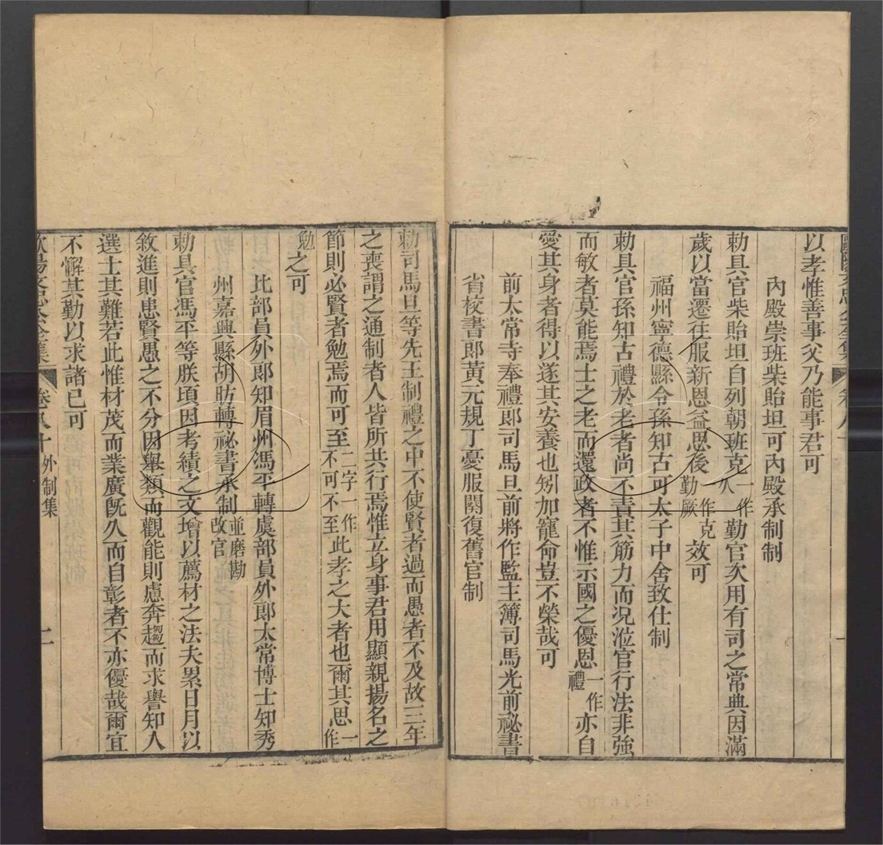 以孝惟善事父乃能事君可
內殿崇班柴貽坦可內殿承制制
勑具官柴貽坦自列朝班克一作久勤官次用有司之常典因滿
歲以當遷往服新恩益思後勤厥作克效可
福州寧德縣令孫知古可太子中舍致仕制
勑具官孫知古禮於老者尚不責其筋力而況涖官行法非強
而敏者莫能焉士之老而還政者不惟示國之優恩一作禮亦自
愛其身者得以遂其安養也矧加寵命豈不榮哉可
前太常寺奉禮郎司馬旦前將作監主簿司馬光前祕書
省校書郎黃元規丁憂服闋復舊官制
勑司馬旦等先王制禮之中不使賢者過而愚者不及故三年
之喪謂之通制者人皆所共行焉惟立身事君用顯親揚名之
節則必賢者勉焉而可至二字一作不可不至此孝之大者也爾其思一作
勉之可
比部員外郎知眉州馮平轉虞部員外郎太常博士知秀
州嘉興縣胡昉轉祕書丞制並磨勘改官
勑具官馮平等朕頃因考績之文增以薦材之法夫累日月以
敘進則患賢愚之不分因舉類而觀能則慮奔趨而求譽知人
選士其難若此惟材茂而業廣旣久而自彰者不亦優哉爾宜
不懈其勤以求諸己可
歐陽文忠公全集 卷八十 外制集 二